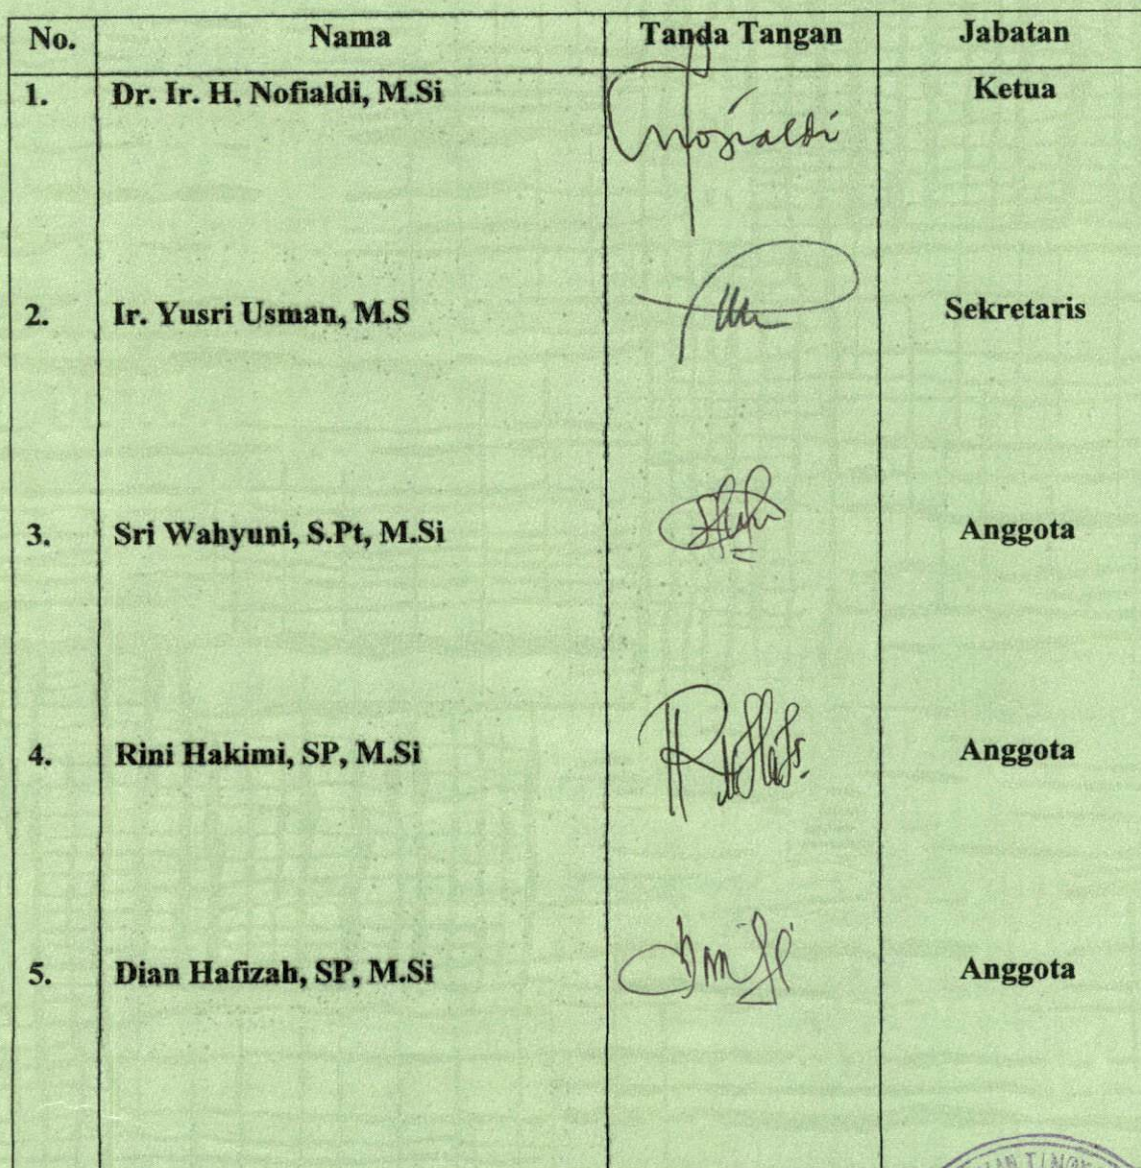 No. Nama Tanda Tangan Jabatan
1. Dr. Ir. H. Nofialdi, M.Si Nofialdi Ketua
2. Ir. Yusri Usman, M.S Sekretaris
3. Sri Wahyuni, S.Pt, M.Si Anggota
4. Rini Hakimi, SP, M.Si Anggota
5. Dian Hafizah, SP, M.Si Anggota